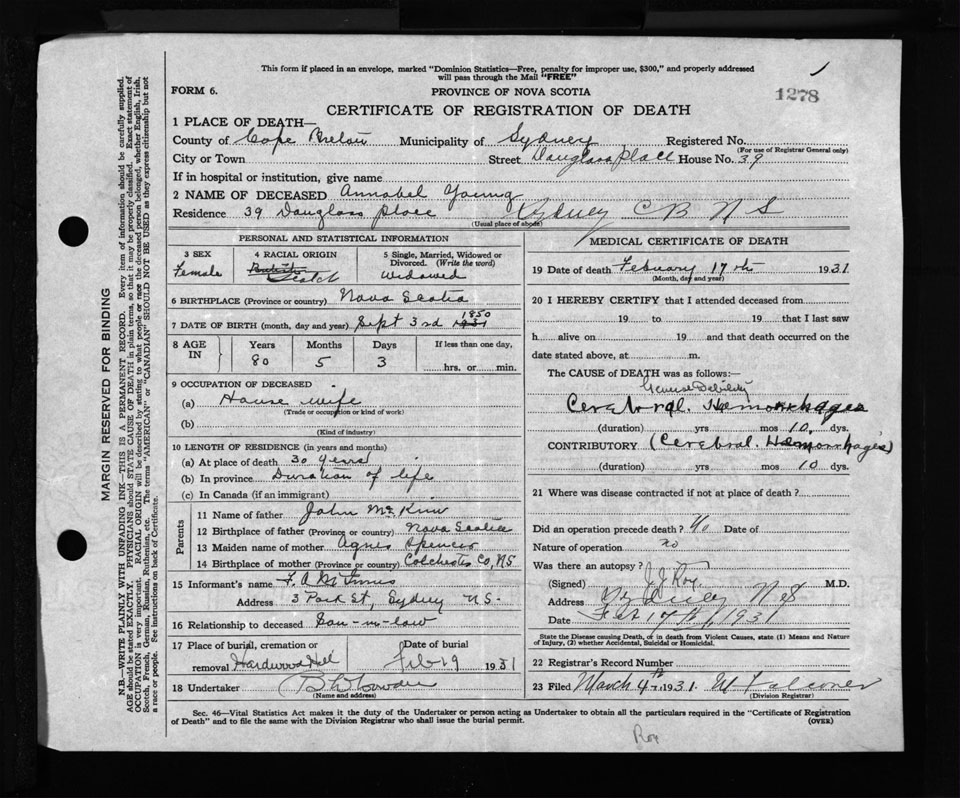 This form if placed in an envelope, marked "Dominion Statistics—Free, penalty for improper use, $300," and properly addressed
will pass through the Mail "FREE"
FORM 6.
PROVINCE OF NOVA SCOTIA
1278
CERTIFICATE OF REGISTRATION OF DEATH
1 PLACE OF DEATH—
County of Cape Breton Municipality of Sydney Registered No.
(For use of Registrar General only)
City or Town Street Douglass place House No. 39
If in hospital or institution, give name
2 NAME OF DECEASED Annabel Young
Residence 39 Douglass place Sydney C B N S
(Usual place of abode)
PERSONAL AND STATISTICAL INFORMATION
3 SEX
Female
4 RACIAL ORIGIN
Scotch
5 Single, Married, Widowed or
Divorced. (Write the word)
Widowed
6 BIRTHPLACE (Province or country) Nova Scotia
7 DATE OF BIRTH (month, day and year) Sept 3rd 1850 1931
8 AGE IN
Years Months Days If less than one day,
80 5 3 hrs. or min.
9 OCCUPATION OF DECEASED
(a) House wife
(Trade or occupation or kind of work)
(b)
(Kind of industry)
10 LENGTH OF RESIDENCE (in years and months)
(a) At place of death 30 years
(b) In province Duration of life
(c) In Canada (if an immigrant)
Parents
11 Name of father John
12 Birthplace of father (Province or country) Nova Scotia
13 Maiden name of mother Agnes Spencer
14 Birthplace of mother (Province or country) Colchester Co, NS
15 Informant's name F. A.
Address 3 Park St, Sydney N.S.
16 Relationship to deceased Son-in-law
17 Place of burial, cremation or
removal Hardwood Hill
Date of burial
Feb 19 1931
18 Undertaker
(Name and address)
MEDICAL CERTIFICATE OF DEATH
19 Date of death February 17th 1931
(Month, day and year)
20 I HEREBY CERTIFY that I attended deceased from
19 to 19 that I last saw
h alive on 19 and that death occurred on the
date stated above, at m.
The CAUSE of DEATH was as follows:—
Debility
Cerebral. Hemorrhages
(duration) yrs mos 10, dys.
CONTRIBUTORY (Cerebral Haemorrhages)
(duration) yrs mos 10 dys.
21 Where was disease contracted if not at place of death?
Did an operation precede death? No Date of
Nature of operation no
Was there an autopsy?
(Signed) J. J. Roy. M.D.
Address Sydney N.S
Date Feb 17th/1931
State the Disease causing Death, or in death from Violent Causes, state (1) Means and Nature
of Injury, (2) whether Accidental, Suicidal or Homicidal.
22 Registrar's Record Number
23 Filed March 4th 1931. M Falconer
(Division Registrar)
Sec. 46—Vital Statistics Act makes it the duty of the Undertaker or person acting as Undertaker to obtain all the particulars required in the "Certificate of Registration
of Death" and to file the same with the Division Registrar who shall issue the burial permit. (OVER)
Roy
MARGIN RESERVED FOR BINDING
N.B.—WRITE PLAINLY WITH UNFADING INK—THIS IS A PERMANENT RECORD. Every item of information should be carefully supplied.
AGE should be stated EXACTLY. PHYSICIANS should STATE CAUSE OF DEATH in plain terms, so that it may be properly classified. Exact statement of
OCCUPATION is very important. RACIAL ORIGIN will be described by stating to what people or race the deceased person belonged, whether English, Irish,
Scotch, French, German, Russian, Ruthenian, etc. The terms "AMERICAN" or "CANADIAN" SHOULD NOT BE USED as they express citizenship but not
a race or people. See instructions on back of Certificate.